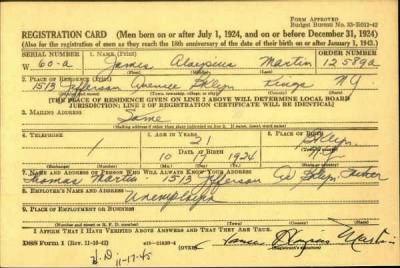 FORM APPROVED
Budget Bureau No. 33-R012-42
REGISTRATION CARD (Men born on or after July 1, 1924, and on or before December 31, 1924)
(Also for the registration of men as they reach the 18th anniversary of the date of their birth on or after January 1, 1943.)
SERIAL NUMBER 1. NAME (Print) ORDER NUMBER
W 60-a James Aloysius Martin 12589a
(First) (Middle) (Last)
2. PLACE OF RESIDENCE (Print)
1513 Jefferson Avenue Bklyn Kings NY.
(Number and street) (Town, township, village, or city) (County) (State)
[THE PLACE OF RESIDENCE GIVEN ON LINE 2 ABOVE WILL DETERMINE LOCAL BOARD
JURISDICTION; LINE 2 OF REGISTRATION CERTIFICATE WILL BE IDENTICAL]
3. MAILING ADDRESS
Same
[Mailing address if other than place indicated on line 2. If same, insert word same]
4. TELEPHONE 5. AGE IN YEARS 6. PLACE OF BIRTH
21 Bklyn
DATE OF BIRTH
10 17 1924 NY
(Exchange) (Number) (Mo.) (Day) (Yr.) (State or country)
7. NAME AND ADDRESS OF PERSON WHO WILL ALWAYS KNOW YOUR ADDRESS
Thomas Martin 1513 Jefferson Av Bklyn Father
8. EMPLOYER'S NAME AND ADDRESS
Unemployed
9. PLACE OF EMPLOYMENT OR BUSINESS
(Number and street or R. F. D. number) (Town) (County) (State)
I AFFIRM THAT I HAVE VERIFIED ABOVE ANSWERS AND THAT THEY ARE TRUE.
DSS Form 1 (Rev. 11-16-42) (OVER) James Aloysius Martin
(Registrant's signature)
11-17-45